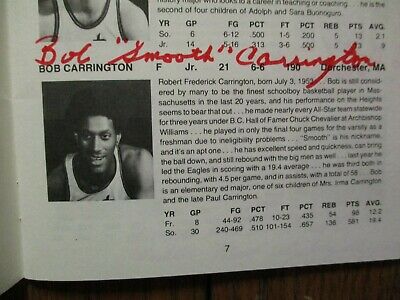 major who is looking to a career in teaching or coaching . . . he is the
second of four children of Adolph and Sara Buonoguro.
YR GP FG PCT FT PCT REB PTS AVG
So. 6 6-12 .500 1-5 .200 5 13 2.2
Jr. 14 5-16 .313 3-6 .500 13 .9
Bob "Smooth" Carrington
BOB CARRINGTON F Jr. 21 6-6 190 Dorchester, MA
Robert Frederick Carrington, born July 3, 1953 . . . Bob is still considered
by many to be the finest schoolboy basketball player in Mas-
sachusetts in the last 20 years, and his performance on the Heights
seems to bear that out . . . he made nearly every All-Star team statewide
for three years under B.C. Hall of Famer Chuck Chevalier at Archbishop
Williams . . . he played in only the final four games for the varsity as a
freshman due to ineligibility problems . . . "Smooth" is his nickname,
and it's an apt one . . . he has excellent speed and quickness, can bring
the ball down, and still rebound with the big men as well . . . last year he
led the Eagles in scoring with a 19.4 average . . . he was third both in
rebounding, with 4.5 per game, and in assists, with a total of 58 . . . Bob
is an elementary ed major, one of six children of Mrs. Irma Carrington
and the late Paul Carrington.
YR GP FG PCT FT PCT REB PTS AVG
Fr. 8 44-92 .478 10-23 .435 54 98 12.2
So. 30 240-469 .510 101-154 .657 136 581 19.4
7